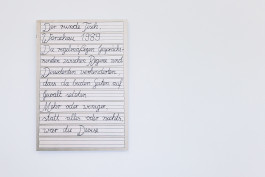 Der runde Tisch
Warschau 1989
Die regelmäßigen Gesprächs-
runden zwischen Regime und
Dissidenten verhinderten
dass die beiden Seiten auf
Gewalt setzten.
Mehr oder weniger,
statt alles oder nichts
war die Devise